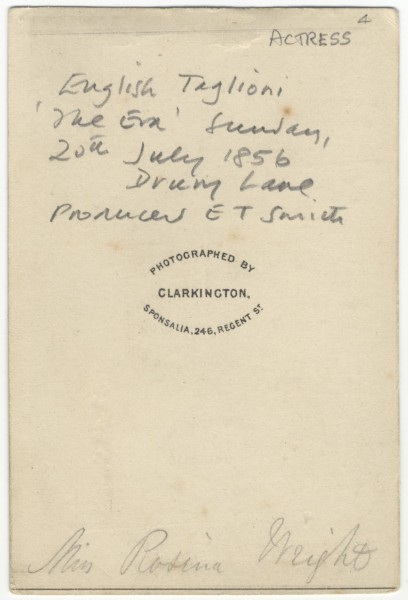 4
ACTRESS
English Taglioni
'The Era' Sunday,
20th July 1856
Drury Lane
Producer E T Smith
PHOTOGRAPHED BY
CLARKINGTON,
SPONSALIA, 246, REGENT ST.
Miss Rosina Wright